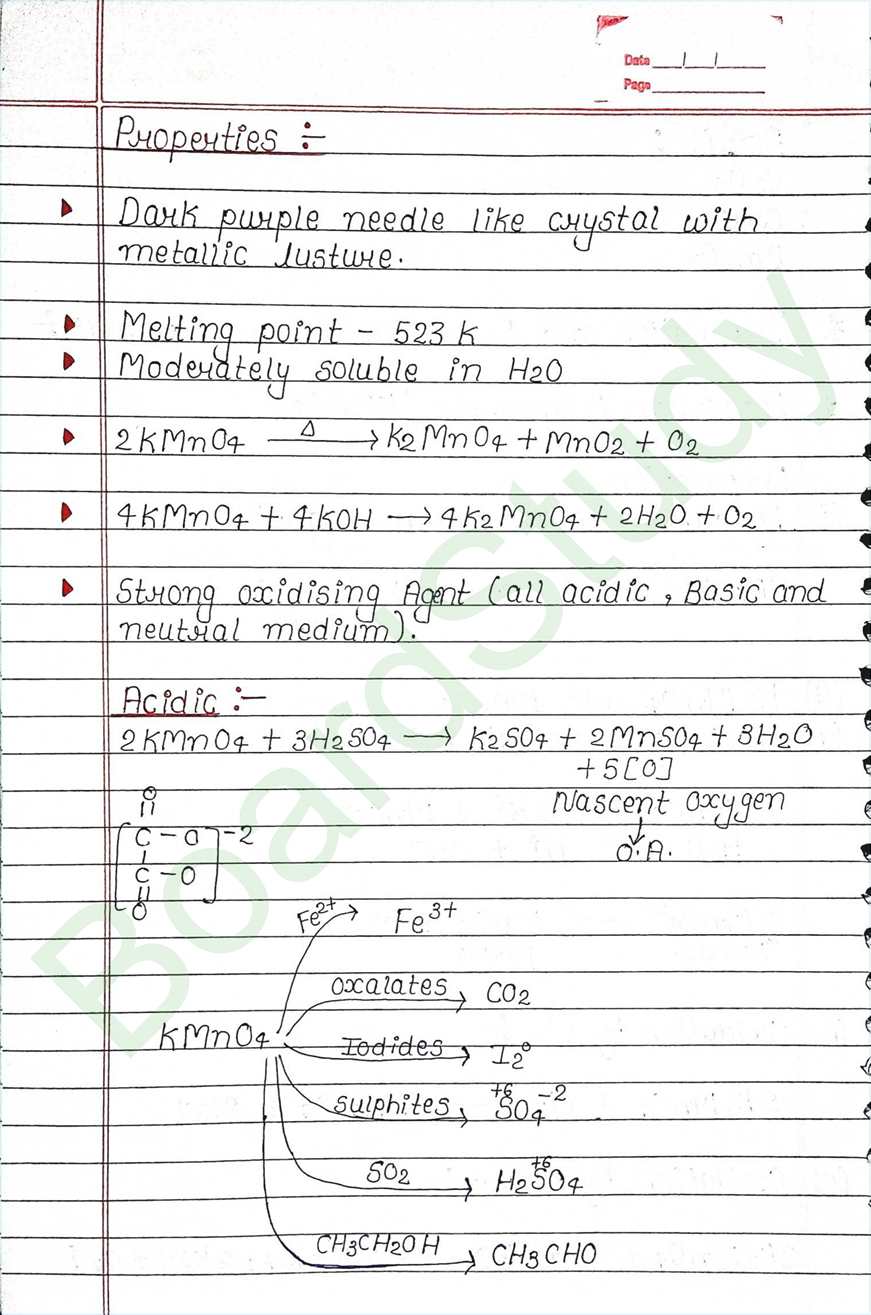 Date / /
Page
Properties :-
Dark purple needle like crystal with
metallic lusture.
Melting point - 523 K
Moderately soluble in H2O
2KMnO4 Δ → K2MnO4 + MnO2 + O2
4KMnO4 + 4KOH → 4K2MnO4 + 2H2O + O2
Strong oxidising Agent (all acidic, Basic and
neutral medium).
Acidic :-
2KMnO4 + 3H2SO4 → K2SO4 + 2MnSO4 + 3H2O
+ 5[O]
Nascent oxygen
O.A.
O
C - O -2
C - O
O
Fe2+ → Fe3+
oxalates → CO2
KMnO4
Iodides → I2°
sulphites → +6 SO4-2
SO2 → H2 +6 SO4
CH3CH2OH → CH3CHO
BoardStudy